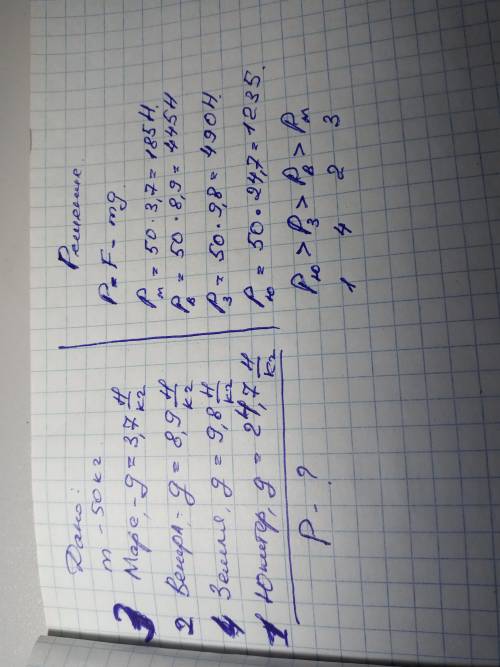 Дано:
m - 50 кг
3 Марс, - g = 3,7 Н/кг
2 Венера, - g = 8,9 Н/кг
4 Земля, g = 9,8 Н/кг
1 Юпитер, g = 24,7 Н/кг
P - ?
Решение.
P = F = mg
Pм = 50 · 3,7 = 185 Н.
Pв = 50 · 8,9 = 445 Н
Pз = 50 · 9,8 = 490 Н.
Pю = 50 · 24,7 = 1235.
Pю > Pз > Pв > Pм
1 4 2 3